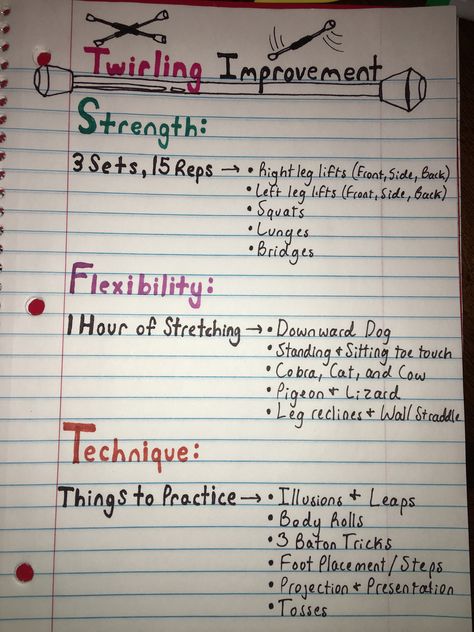 Twirling Improvement
Strength:
3 Sets, 15 Reps → • Right leg lifts (Front, Side, Back)
• Left leg lifts (Front, Side, Back)
• Squats
• Lunges
• Bridges
Flexibility:
1 Hour of Stretching → • Downward Dog
• Standing + Sitting toe touch
• Cobra, Cat, and Cow
• Pigeon + Lizard
• Leg reclines + Wall Straddle
Technique:
Things to Practice → • Illusions + Leaps
• Body Rolls
• 3 Baton Tricks
• Foot Placement/Steps
• Projection + Presentation
• Tosses